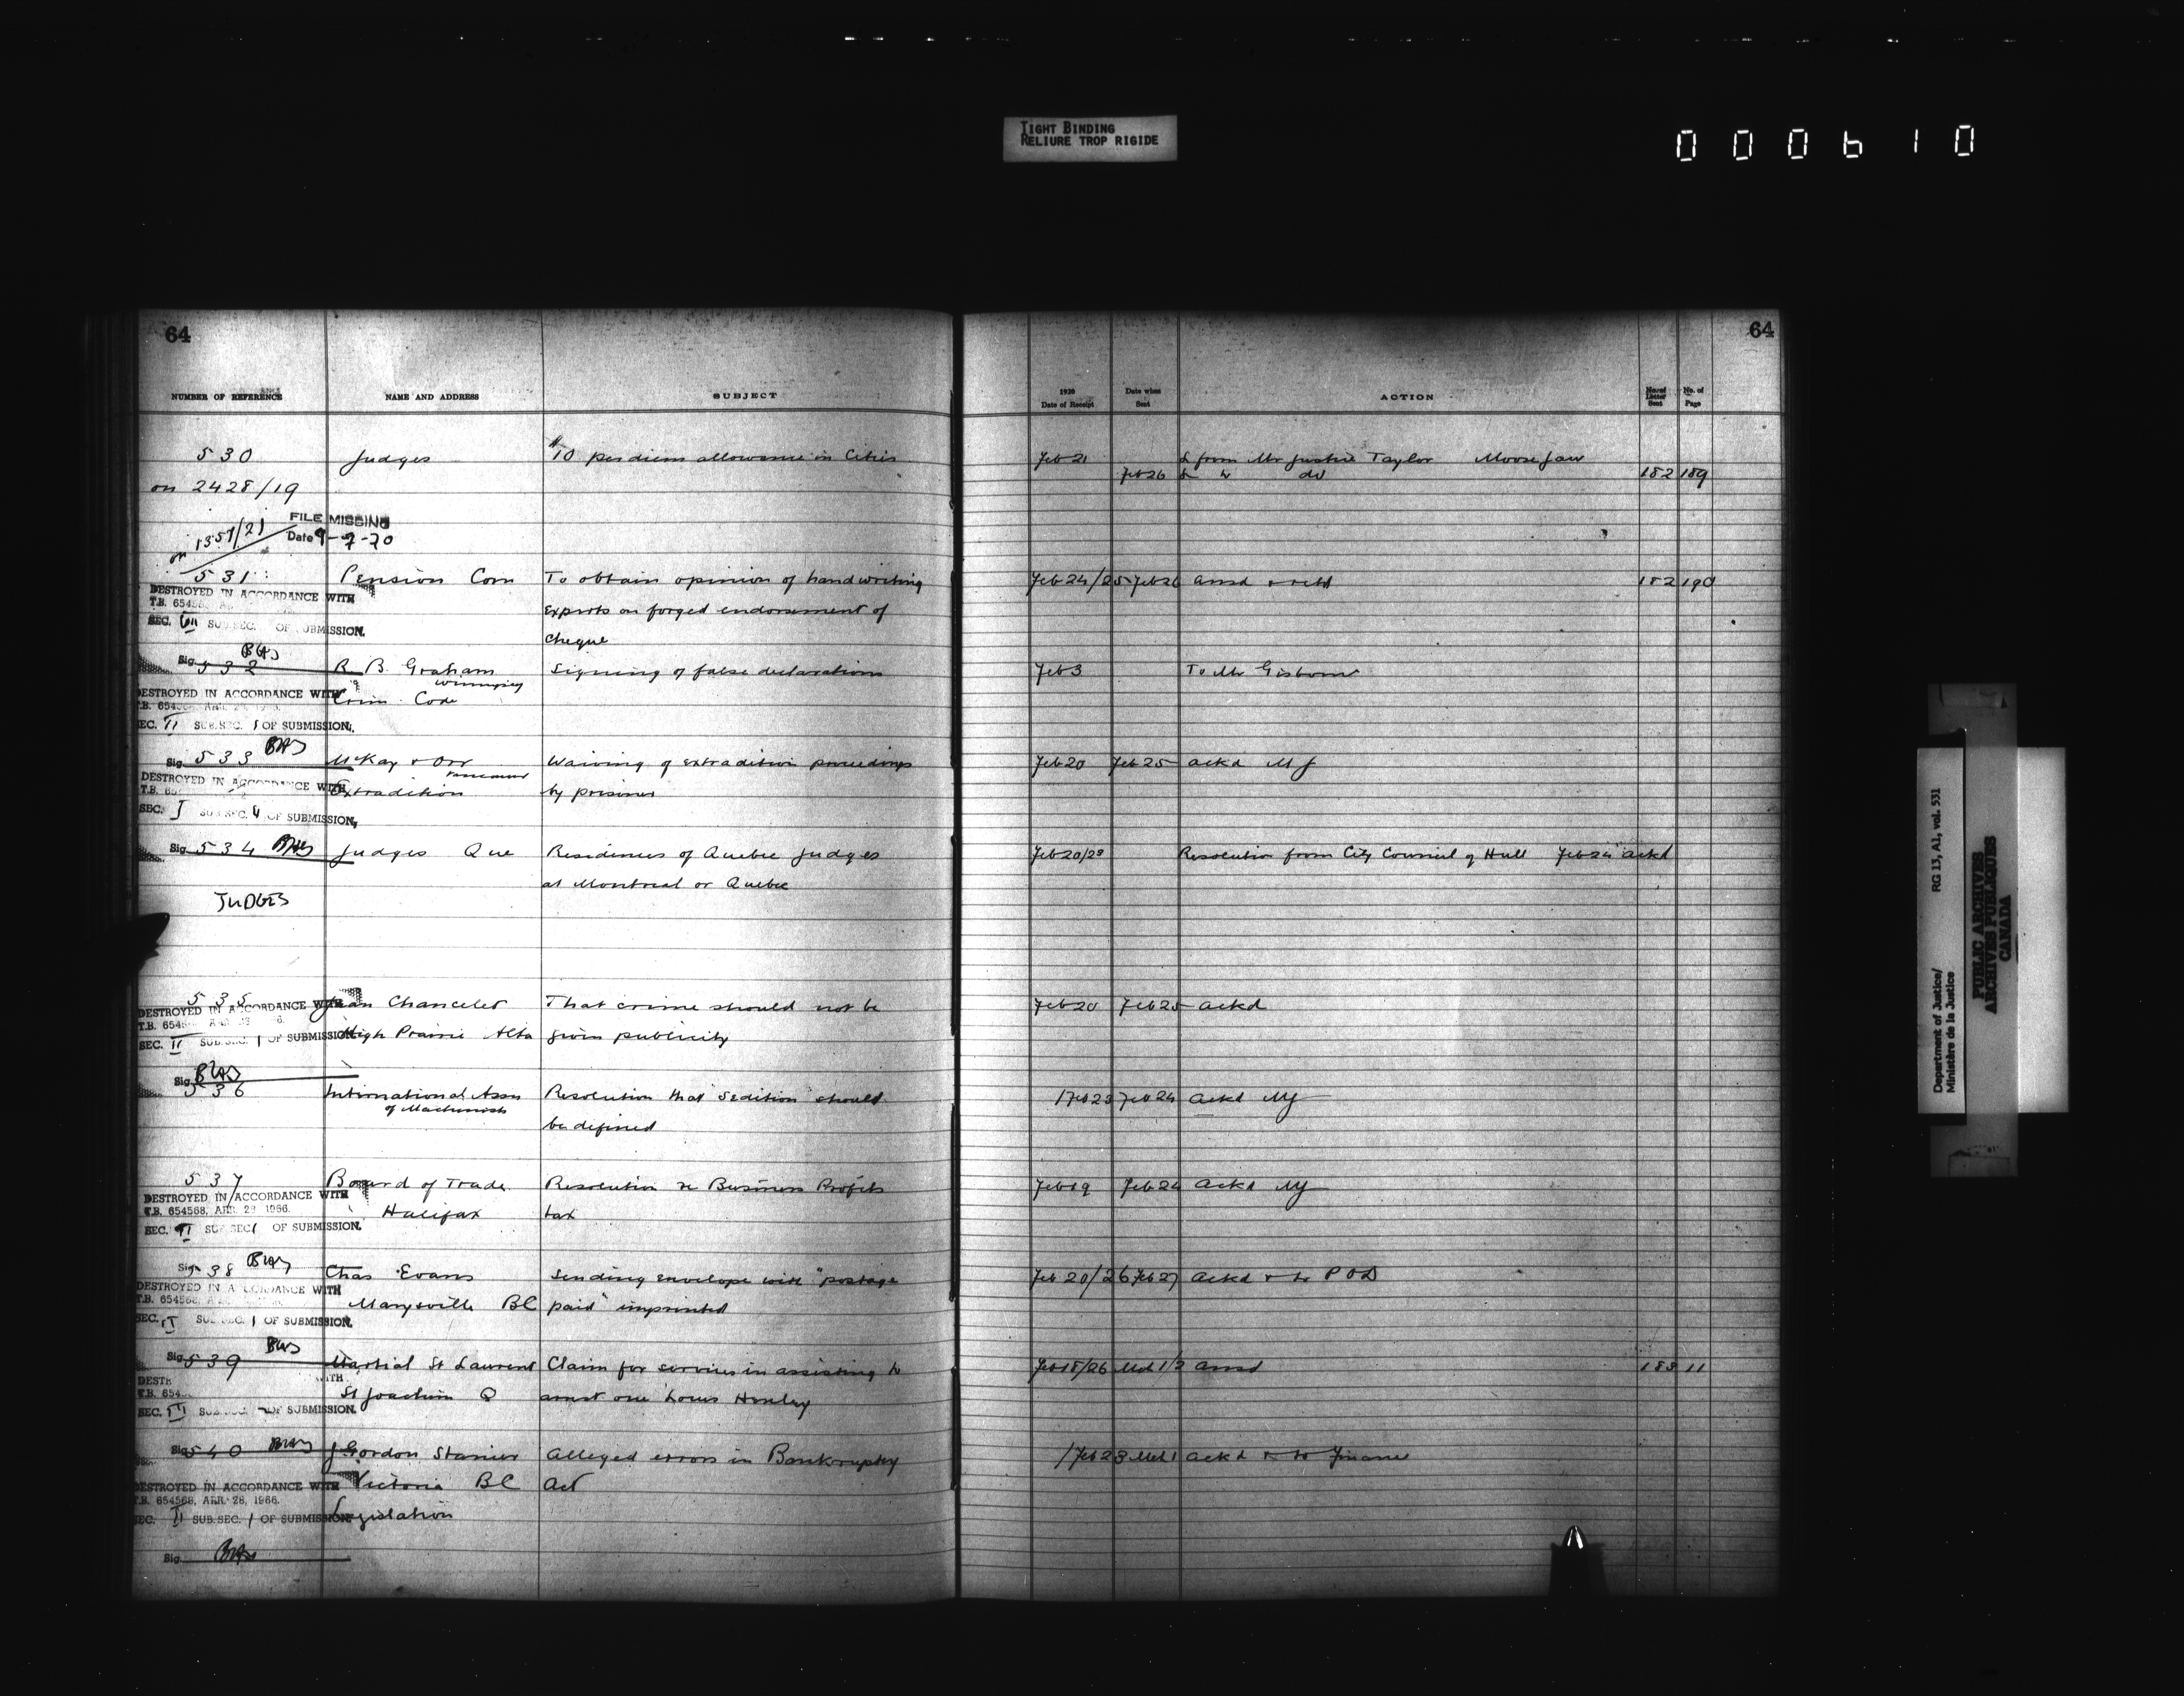 TIGHT BINDING
RELIURE TROP RIGIDE
000610
64
64
NUMBER OF REFERENCE NAME AND ADDRESS SUBJECT
1920 Date of Receipt Date when Sent ACTION No. of Letter Sent No. of Page
530 Judges $10 per diem allowance in Cities Feb 21 L from Mr Justice Taylor Moose Jaw
Feb 26 L to do 182 189
on 2428/19
FILE MISSING
on 1357/21 Date 9-7-70
531 Pension Com To obtain opinion of handwriting Feb 24/25 Feb 26 ansd & retd 182 190
DESTROYED IN ACCORDANCE WITH
T.B. 65456
Experts on forged endorsement of
SEC. VII SUB.SEC. OF SUBMISSION.
Cheque
Sig. BWS
532 R. B. Graham Signing of false declarations Feb 3 To Mr Gisborne
Winnipeg
DESTROYED IN ACCORDANCE WITH Crim. Code
T.B. 654
SEC. II SUB.SEC. 1 OF SUBMISSION.
Sig. BWS
533 McKay & Orr Waiving of extradition proceedings Feb 20 Feb 25 ackd MJ
Vancouver
DESTROYED IN ACCORDANCE WITH
T.B. 65 Extradition by prisoner
SEC. I SUB.SEC. 4 OF SUBMISSION.
Sig. 534 BWS Judges Que Residences of Quebec Judges Feb 20/23 Resolution from City Council of Hull Feb 24 ackd
at Montreal or Quebec
JUDGES
535 Jean Chanceler That crime should not be Feb 20 Feb 25 ackd
DESTROYED IN ACCORDANCE WITH
T.B. 654
High Prairie Alta given publicity
SEC. II SUB.SEC. 1 OF SUBMISSION.
Sig. BWS
536 International Assn Resolution that "Sedition" should 1 Feb 23 Feb 24 ackd MJ
of Machinists
be defined
537 Board of Trade Resolution re Business Profits Feb 19 Feb 24 ackd MJ
DESTROYED IN ACCORDANCE WITH
T.B. 654568, APR. 28 1966. Halifax tax
SEC. II SUB.SEC 1 OF SUBMISSION.
Sig. BWS
538 Chas Evans Sending envelope with "postage Feb 20/26 Feb 27 ackd & to P O D
DESTROYED IN ACCORDANCE WITH
T.B. 654568, Marysville BC paid" imprinted
SEC. II SUB.SEC. 1 OF SUBMISSION.
Sig. BWS
539 Martial St Laurent Claim for services in assisting to Feb 18/26 Mch 1/2 ansd 183 11
DESTR WITH
T.B. 654 St Joachim Q arrest one Louis Henley
SEC. III SUB.SEC. OF SUBMISSION.
Sig. BWS
540 J Gordon Stanier Alleged errors in Bankruptcy 1 Feb 23 Mch 1 ackd & to Finance
Victoria BC Act
DESTROYED IN ACCORDANCE WITH
T.B. 654568, APR. 28, 1966.
Legislation
SEC. II SUB.SEC. 1 OF SUBMISSION
Sig. BWS
Department of Justice/ RG 13, A1, vol. 531
Ministère de la Justice
PUBLIC ARCHIVES
ARCHIVES PUBLIQUES
CANADA